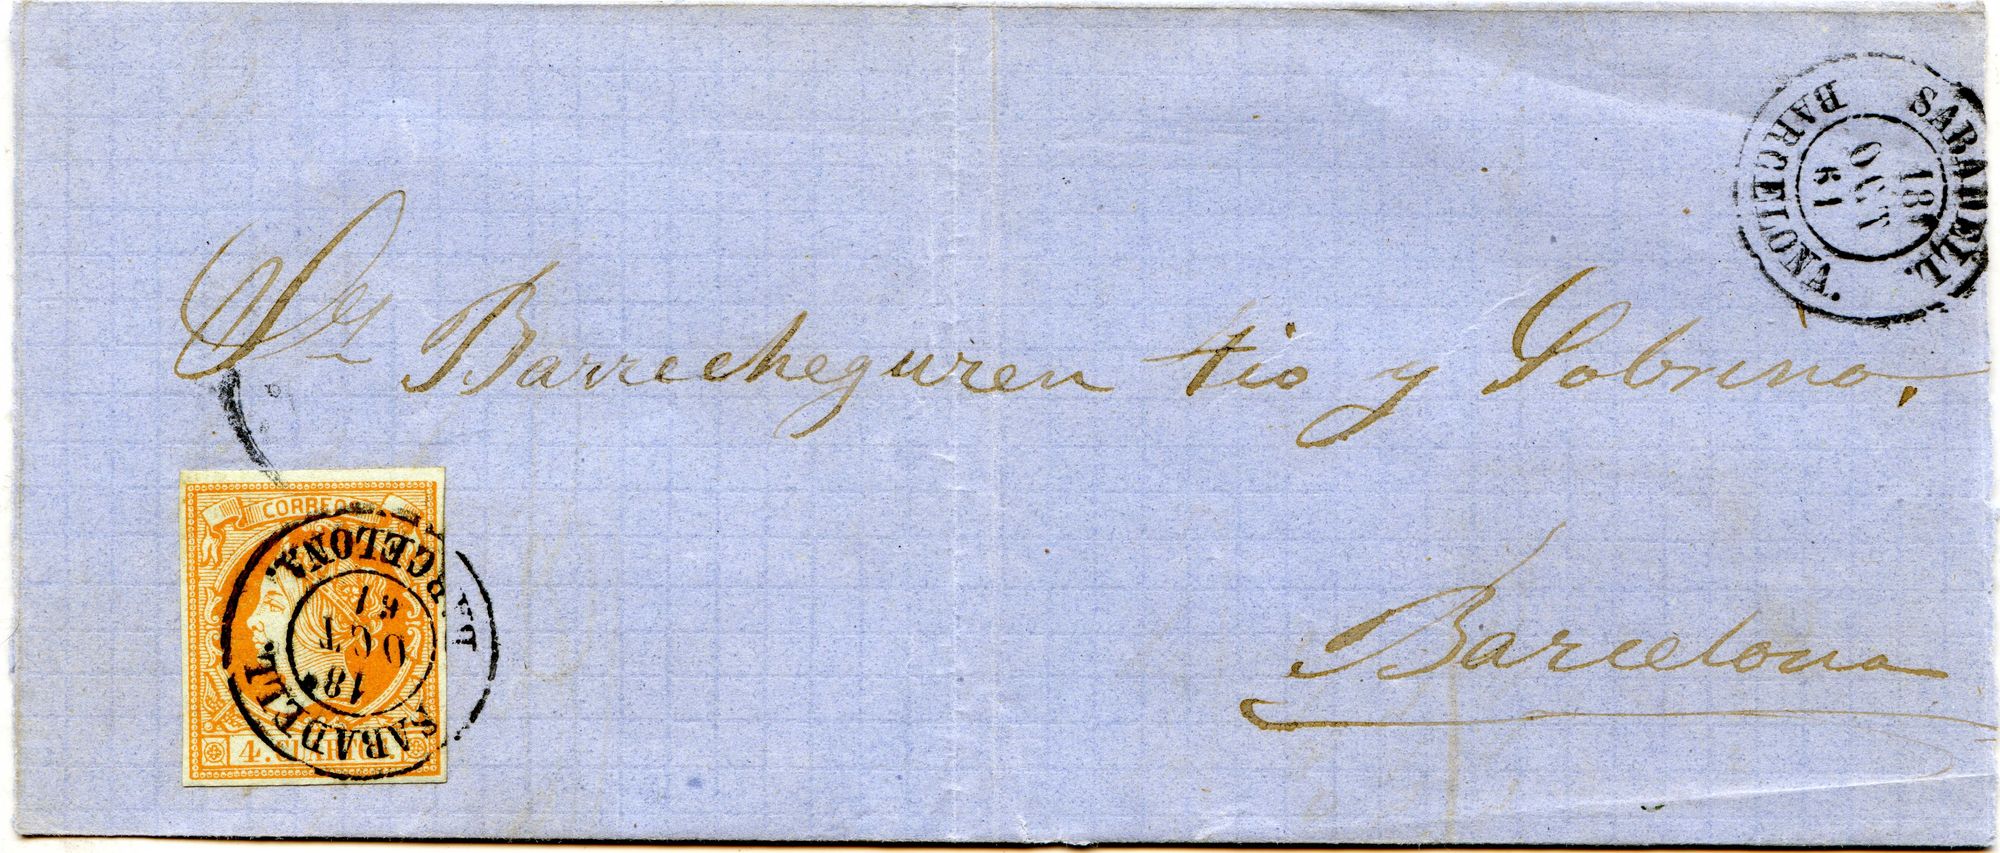 SABADELL.
18
OCT
61
BARCELONA.
Sres Barrecheguren tio y Sobrino.
CORREOS
4. CUARTOS.
SABADELL.
18
OCT
61
BARCELONA.
Barcelona